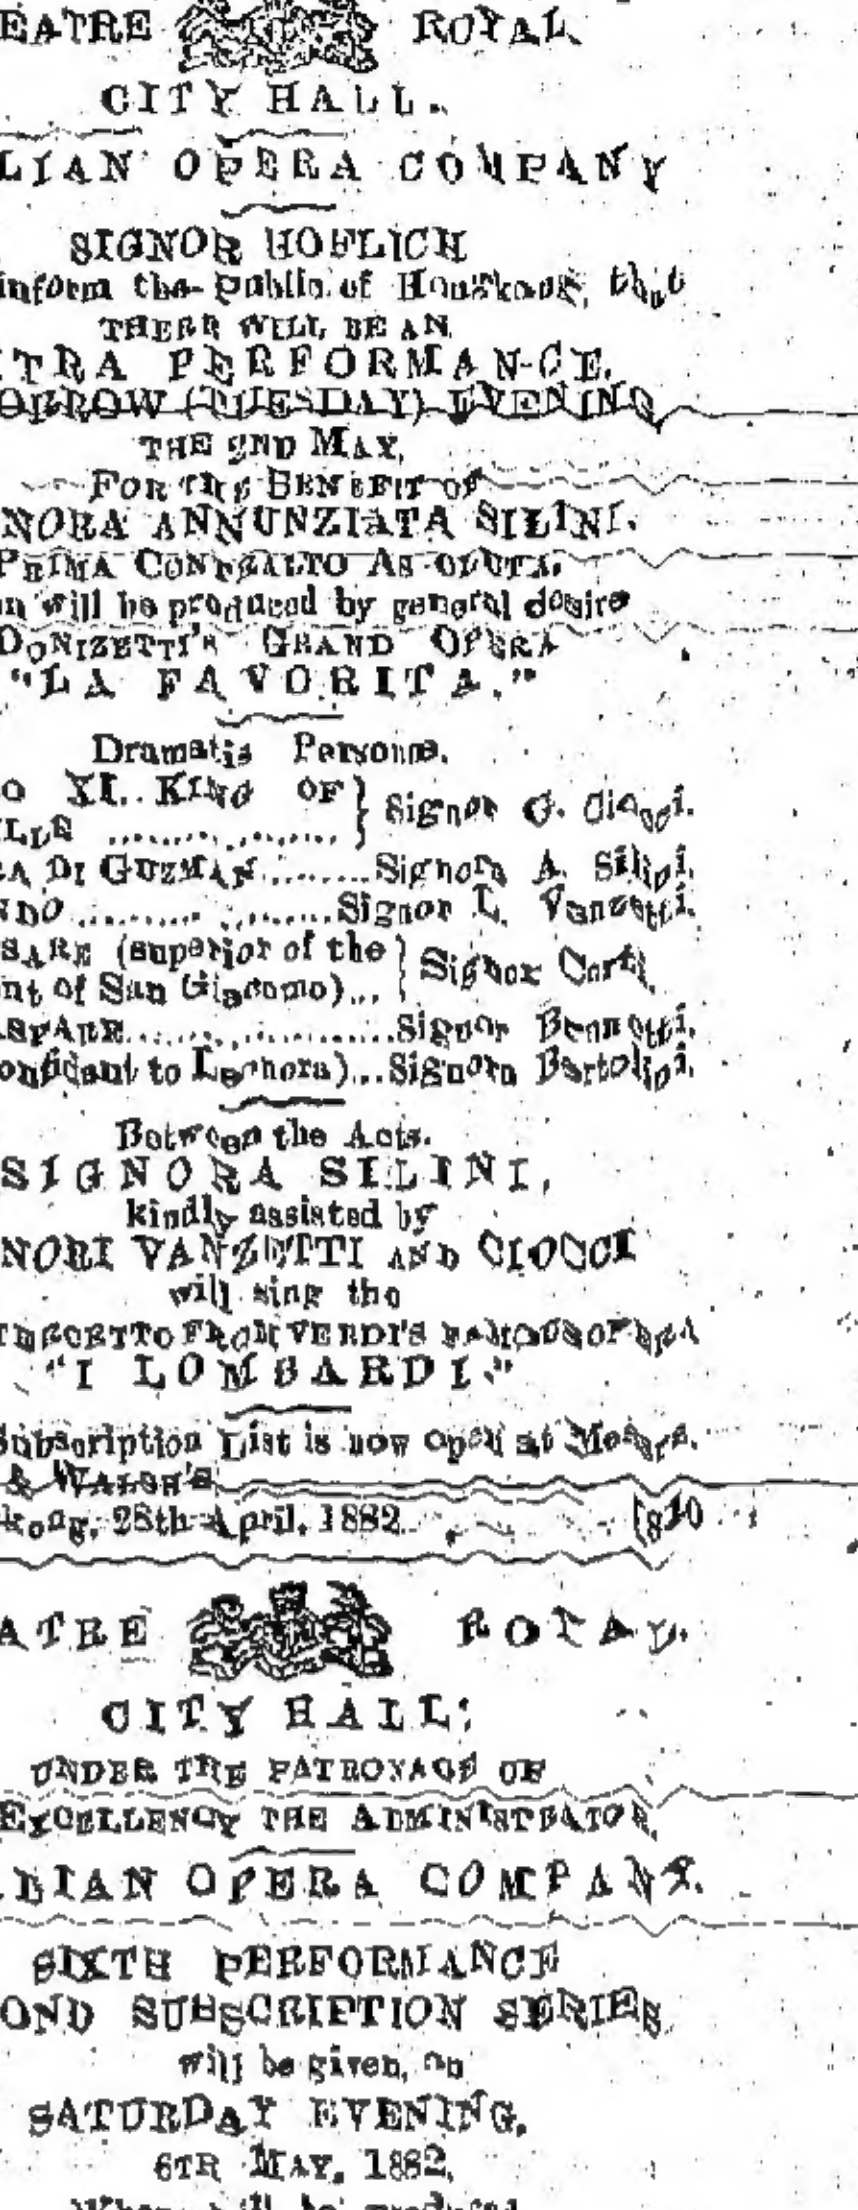 EATRE ROYAL
CITY HALL.
LIAN OPERA COMPANY
SIGNOR HOFLICH
inform the public of Hongkong, that
THERE WILL BE AN
TRA PERFORMANCE.
ORROW (TUESDAY) EVENING
THE 2ND MAY,
FOR THE BENEFIT OF
NORA ANNUNZIATA SILINI.
PRIMA CONTRALTO ASSOLUTA.
n will be produced by general desire
DONIZETTI'S GRAND OPERA
"LA FAVORITA."
Dramatis Personæ.
O XI. KING OF } Signor G. Ciocci.
ILLE ..................
RA DI GUZMAN.........Signora A. Silini.
NDO..................Signor L. Vanzetti.
SARE (superior of the } Signor Corti.
nt of San Giacomo)...
SPARE..................Signor Bennetti.
onfidant to Leonora)...Signora Bartolini.
Between the Acts.
SIGNORA SILINI,
kindly assisted by
NORI VANZETTI AND CIOCCI
will sing the
TERZETTO FROM VERDI'S FAMOUS OPERA
"I LOMBARDI."
Subscription List is now open at Messrs.
& WALSH'S
kong, 28th April, 1882. [810
ATRE ROYAL.
CITY HALL.
UNDER THE PATRONAGE OF
EXCELLENCY THE ADMINISTRATOR.
LIAN OPERA COMPANY.
SIXTH PERFORMANCE
OND SUBSCRIPTION SERIES
will be given, on
SATURDAY EVENING,
6TH MAY, 1882,
When will be produced